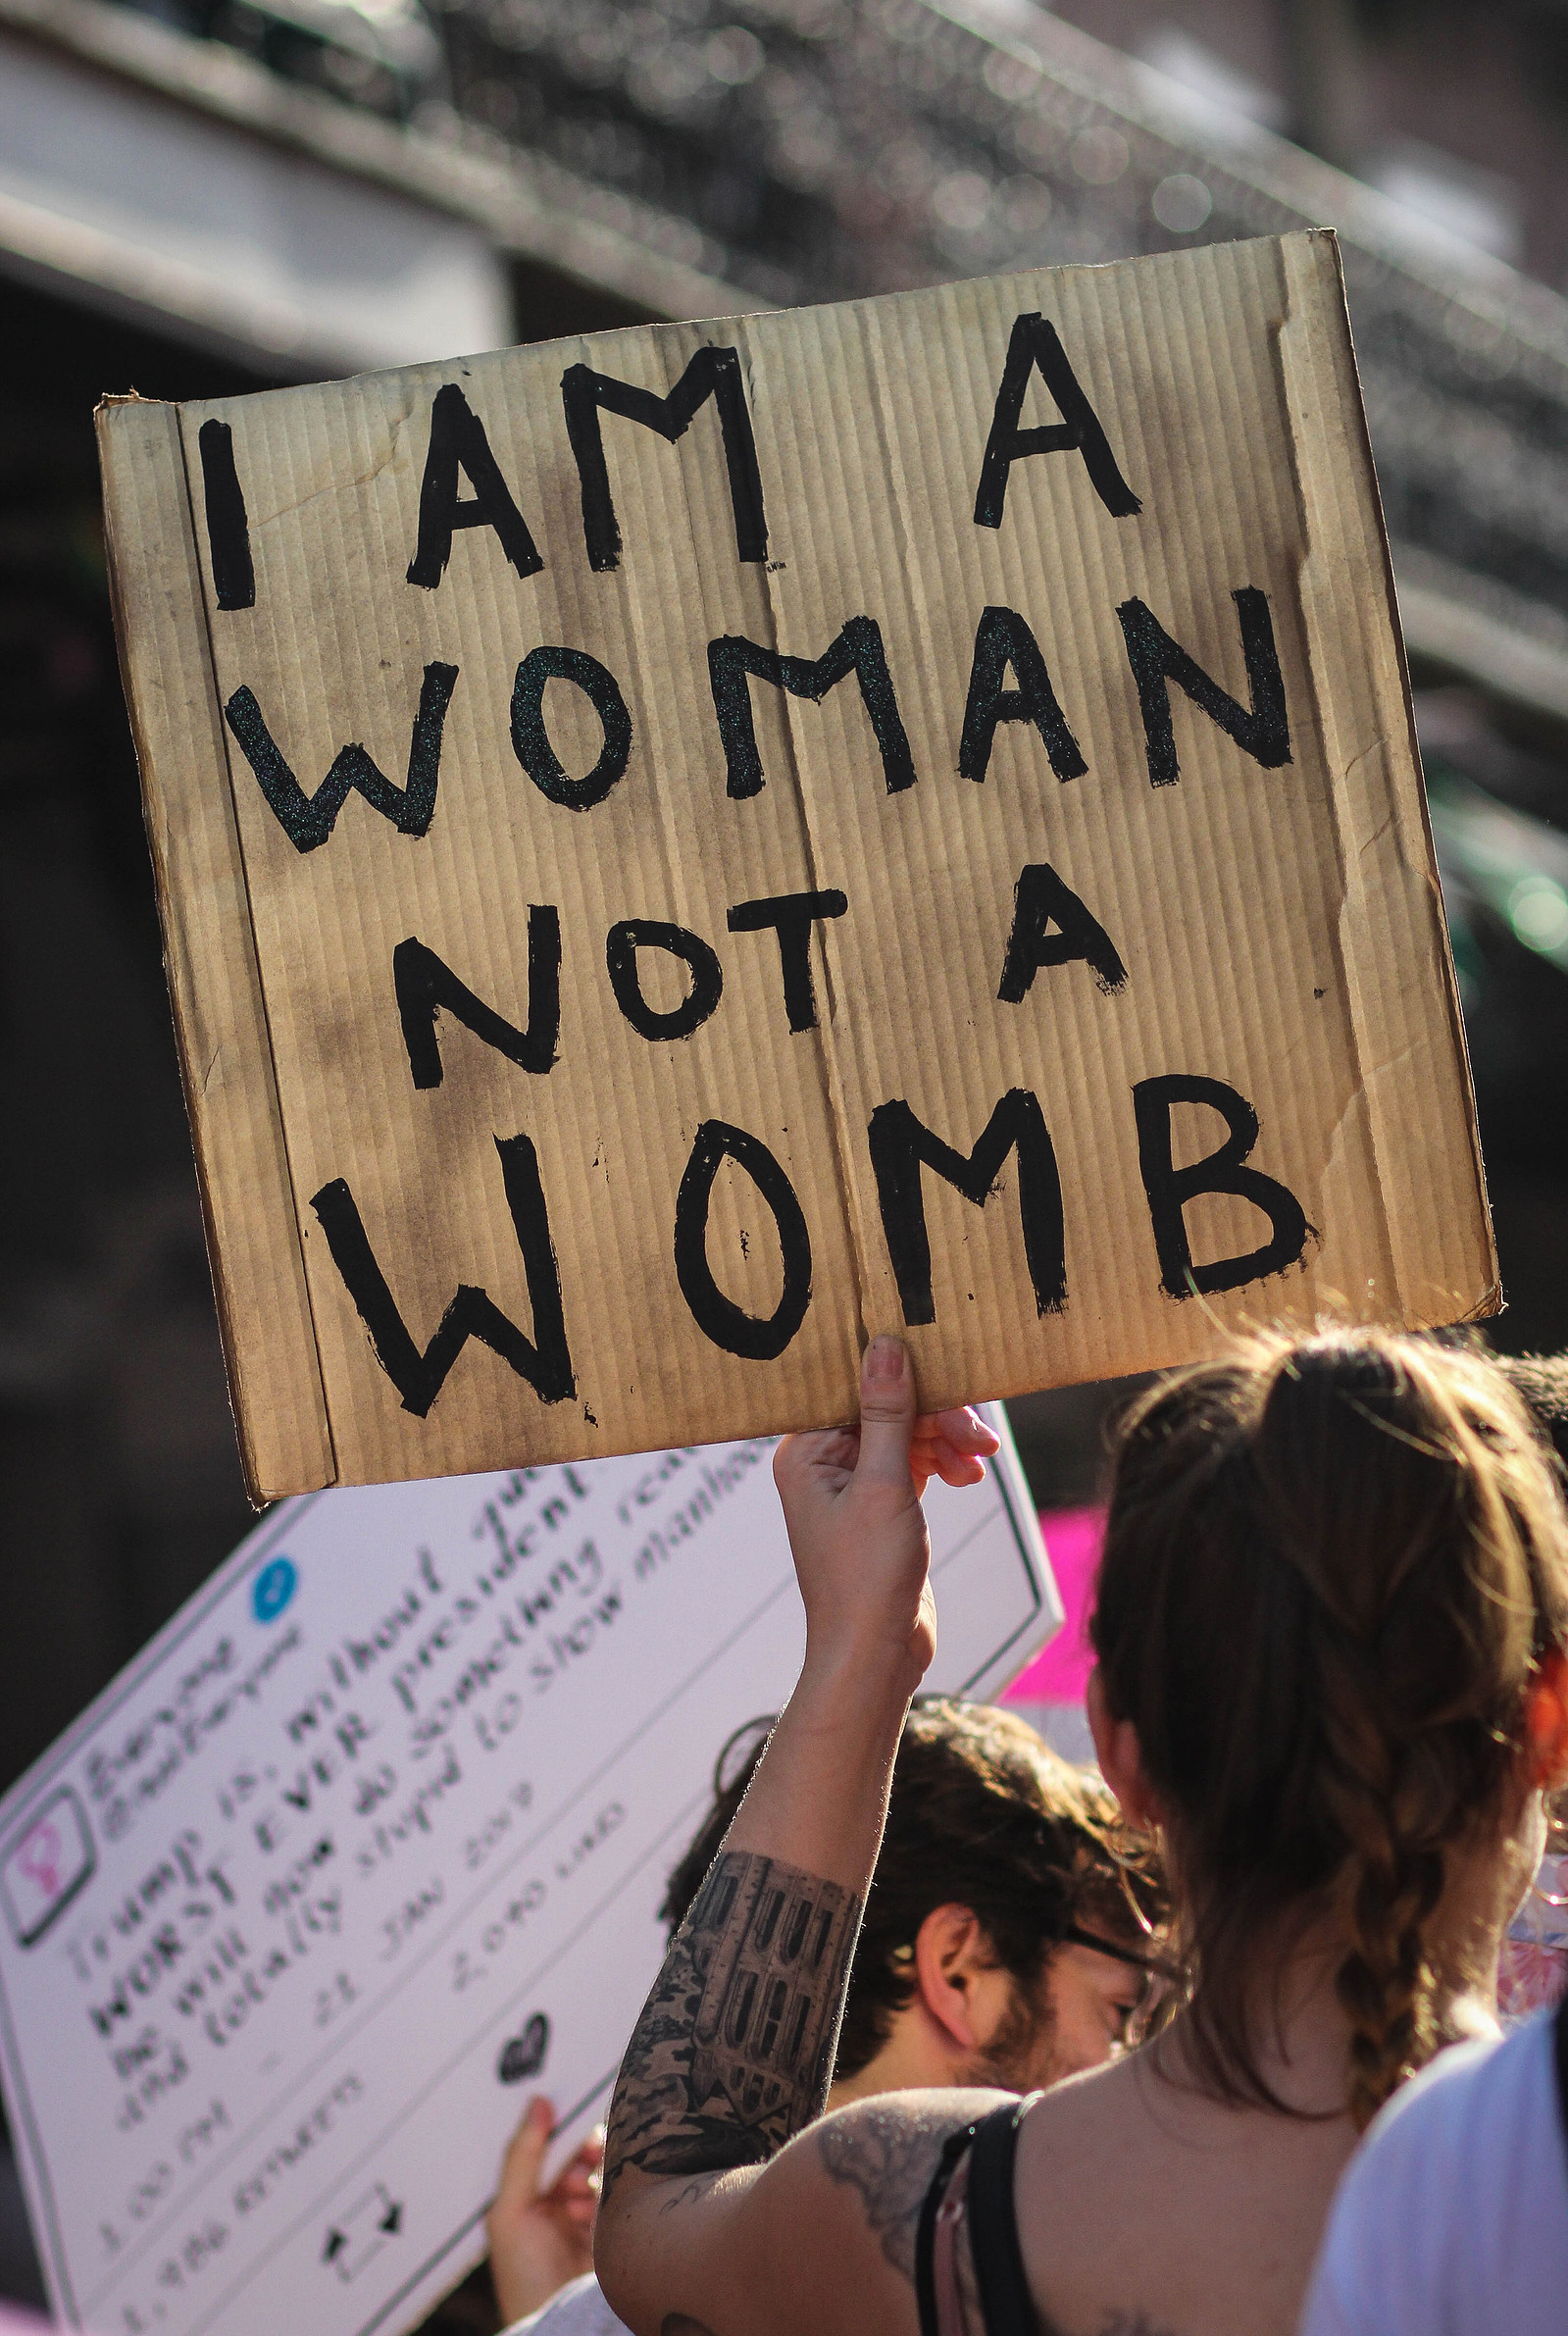 I AM A
WOMAN
NOT A
WOMB
Everyone
Trump is, without
WORST EVER president
be will now do something
and totally stupid to show manhoo
1:00 PM - 21 JAN 2017
1,986 RETWEETS 2,090 LIKES